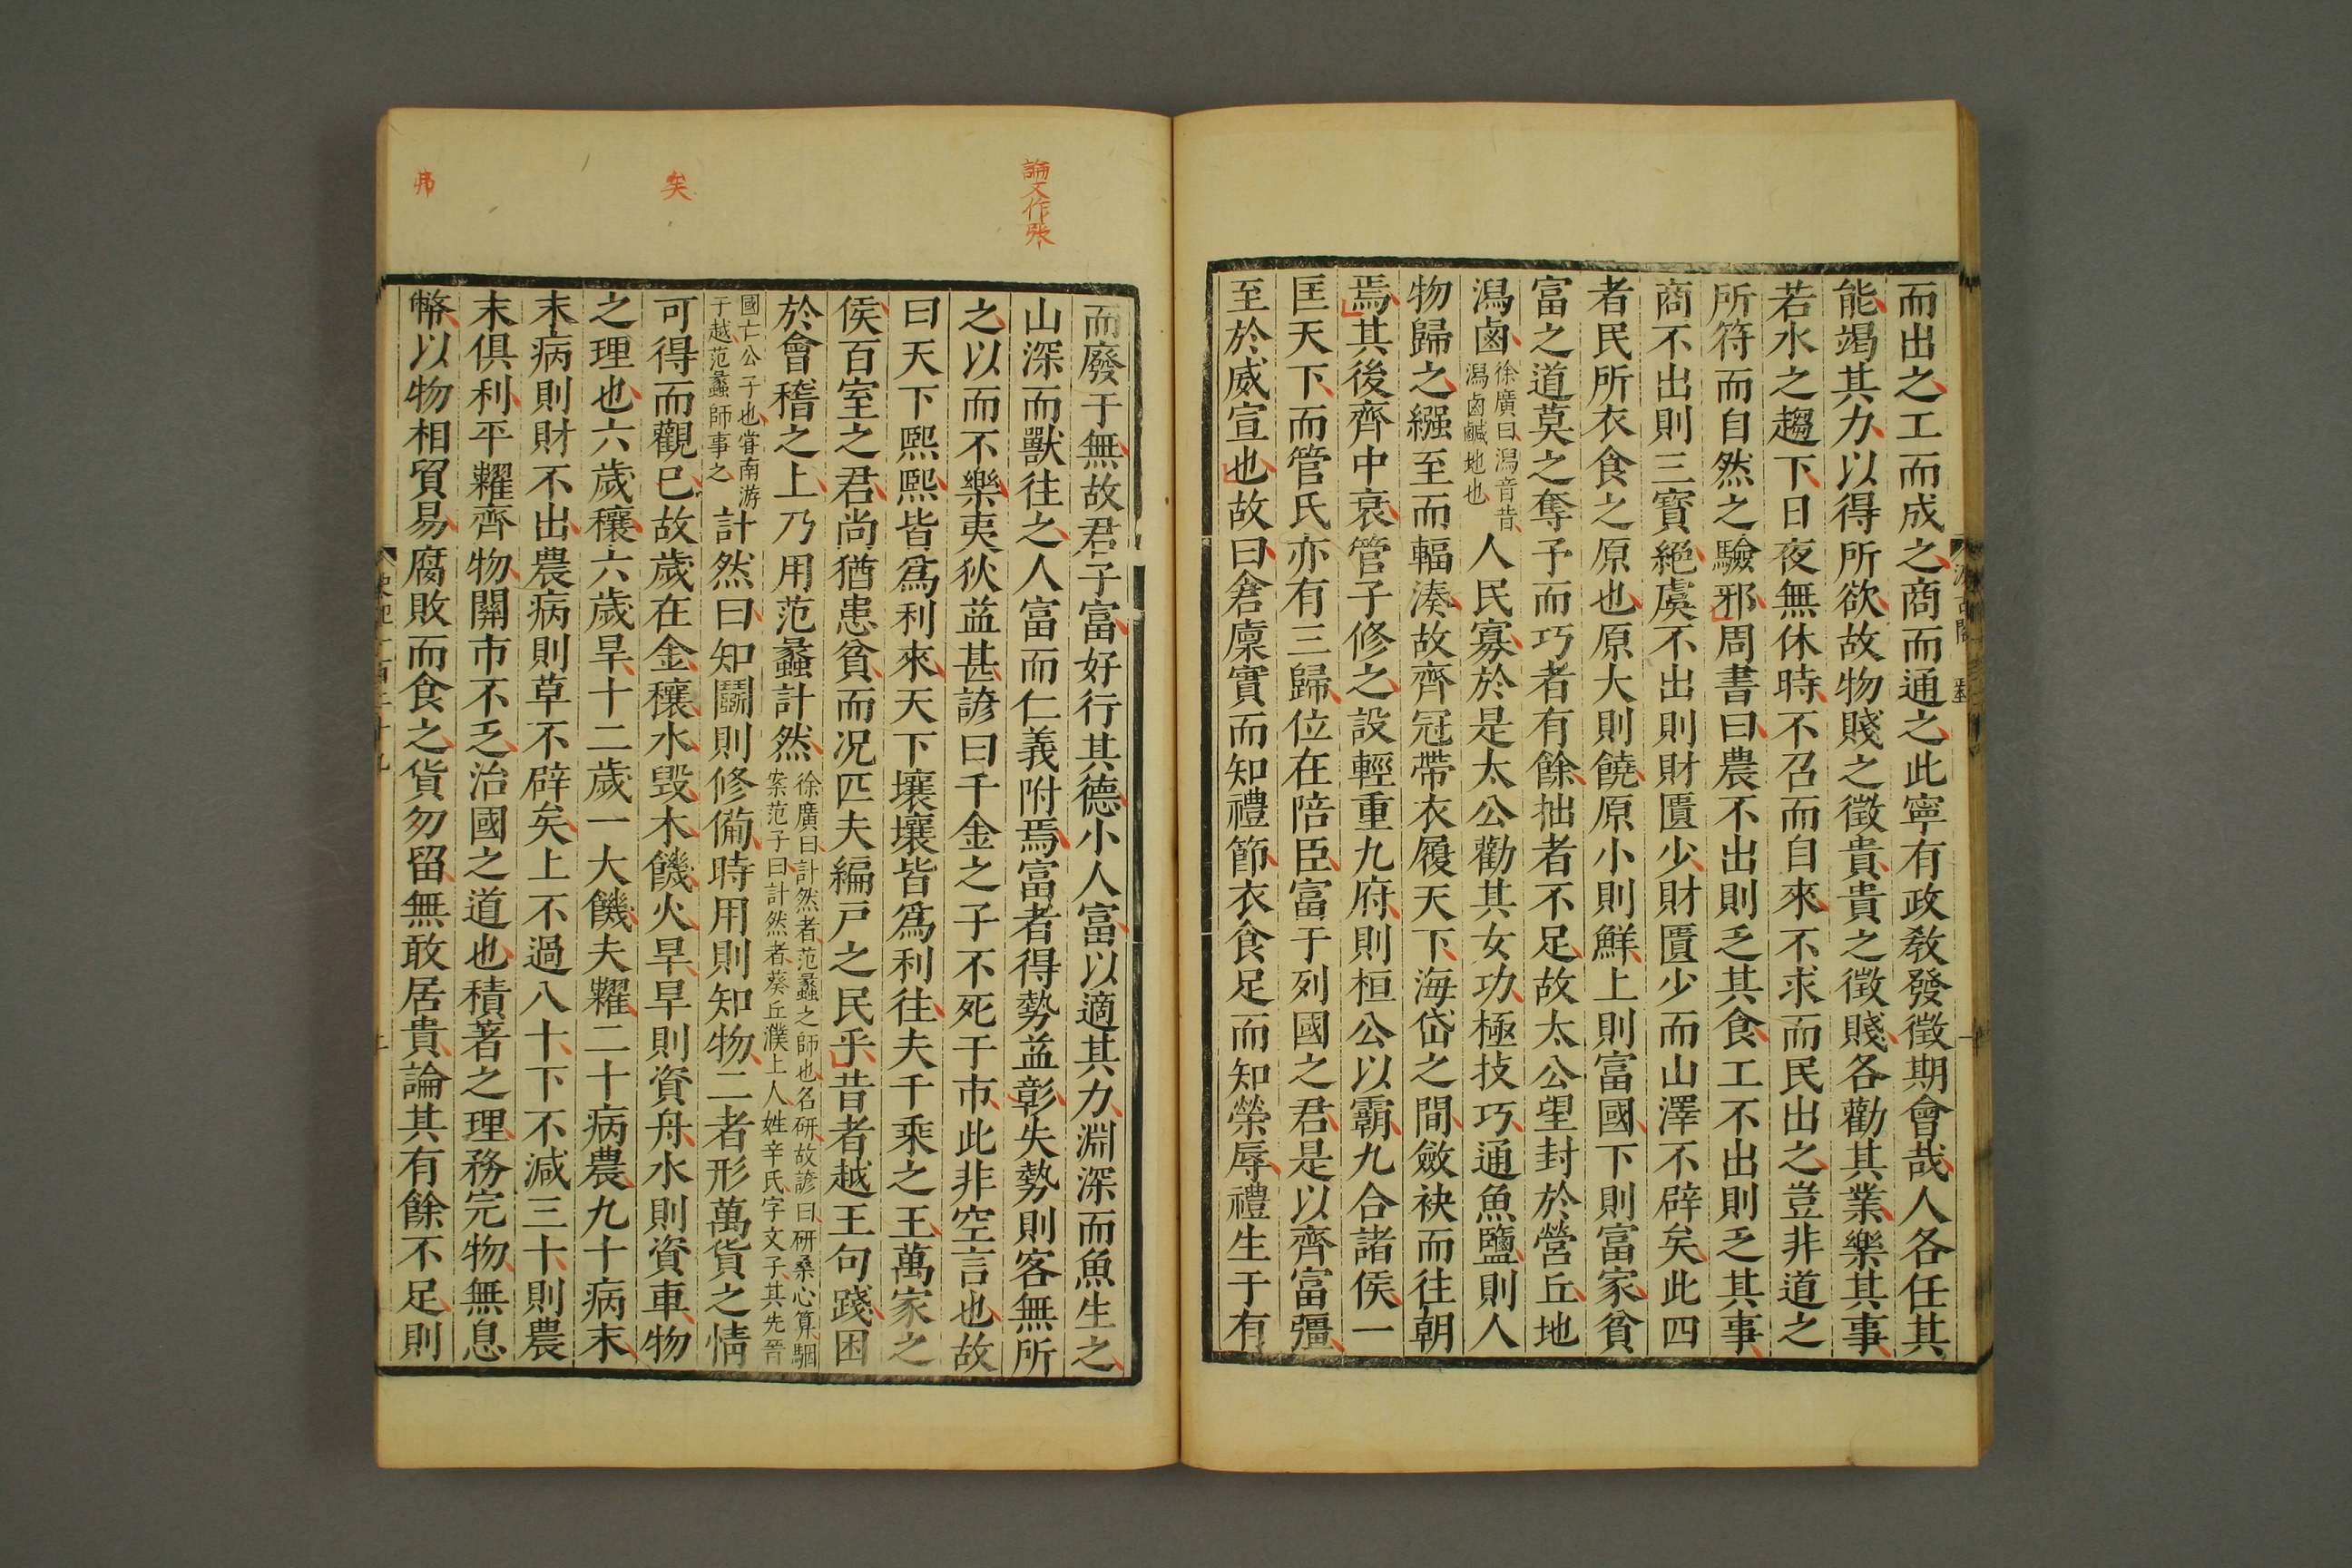 而出之工而成之商而通之此寧有政敎發徵期會哉人各任其
能竭其力以得所欲故物賤之徵貴貴之徵賤各勸其業樂其事
若水之趨下日夜無休時不召而自來不求而民出之豈非道之
所符而自然之驗邪周書曰農不出則乏其食工不出則乏其事
商不出則三寶絕虞不出則財匱少財匱少而山澤不辟矣此四
者民所衣食之原也原大則饒原小則鮮上則富國下則富家貧
富之道莫之奪予而巧者有餘拙者不足故太公望封於營丘地
潟鹵
徐廣曰潟音昔
潟鹵鹹地也
人民寡於是太公勸其女功極技巧通魚鹽則人
物歸之繦至而輻湊故齊冠帶衣履天下海岱之間斂袂而往朝
焉其後齊中衰管子修之設輕重九府則桓公以霸九合諸侯一
匡天下而管氏亦有三歸位在陪臣富于列國之君是以齊富彊
至於威宣也故曰倉廩實而知禮節衣食足而知榮辱禮生于有
而廢于無故君子富好行其德小人富以適其力淵深而魚生之
山深而獸往之人富而仁義附焉富者得勢益彰失勢則客無所
之以而不樂夷狄益甚諺曰千金之子不死于市此非空言也故
曰天下熙熙皆爲利來天下壤壤皆爲利往夫千乘之王萬家之
侯百室之君尚猶患貧而况匹夫編戸之民乎昔者越王句踐困
於會稽之上乃用范蠡計然
徐廣曰計然者范蠡之師也名研故諺曰研桑心算駰
案范子曰計然者葵丘濮上人姓辛氏字文子其先晉
國亡公子也甞南游
于越范蠡師事之
計然曰知鬭則修備時用則知物二者形萬貨之情
可得而觀巳故歲在金穰水毀木饑火旱旱則資舟水則資車物
之理也六歲穰六歲旱十二歲一大饑夫糶二十病農九十病末
末病則財不出農病則草不辟矣上不過八十下不減三十則農
末俱利平糶齊物關市不乏治國之道也積著之理務完物無息
幣以物相貿易腐敗而食之貨勿留無敢居貴論其有餘不足則
論文作張
矣
弗
汲古閣
史記一百二十九